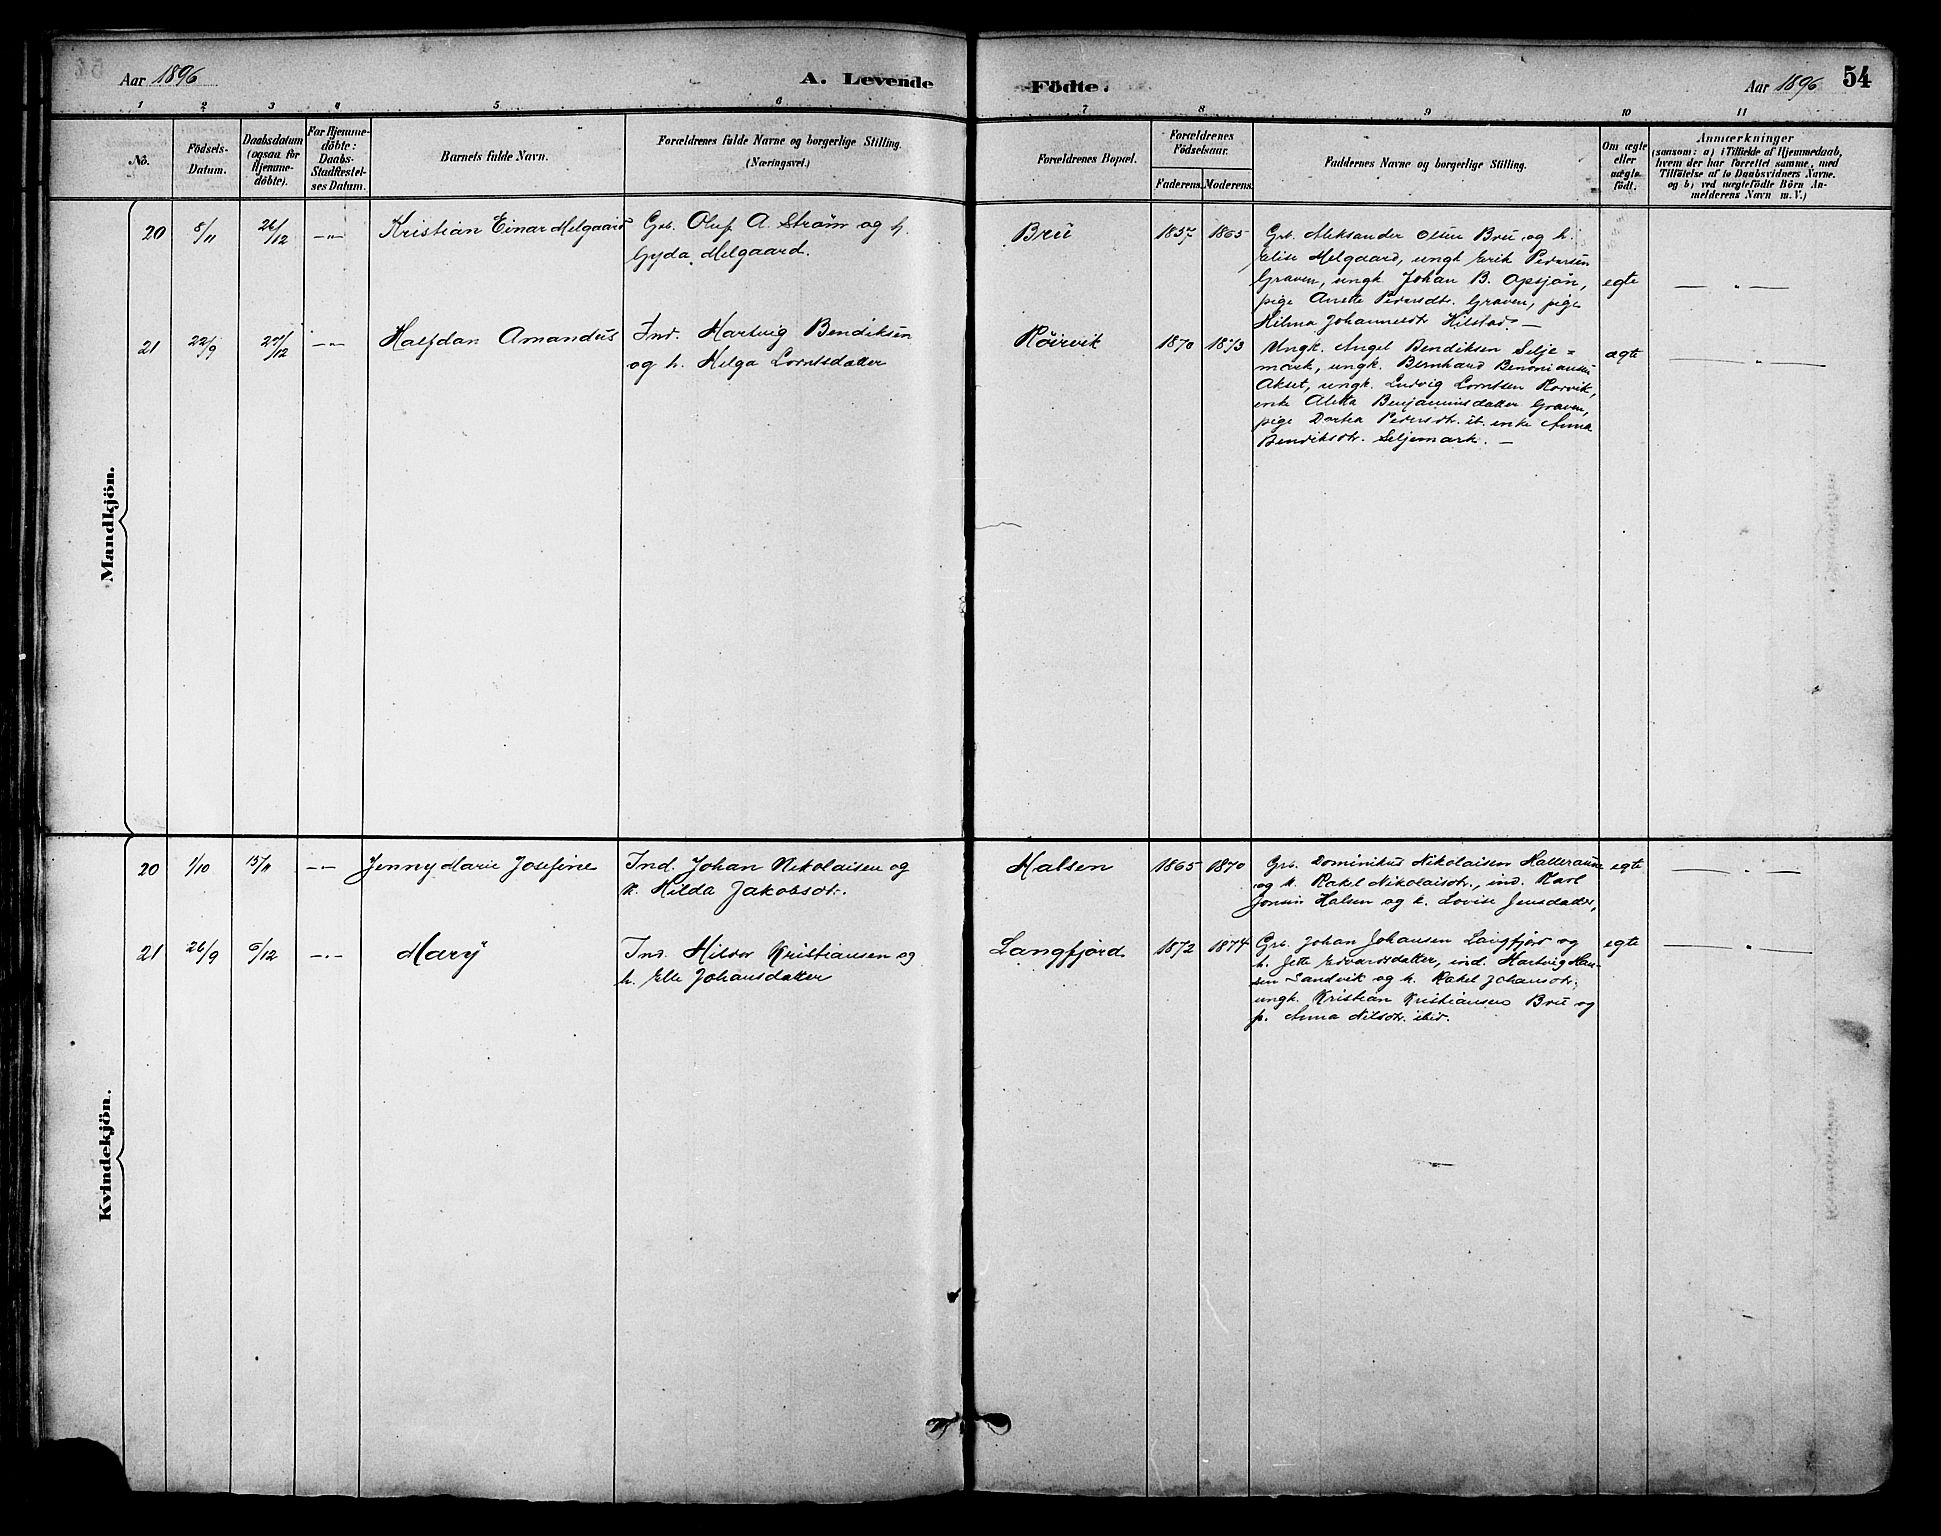 Aar 1896 A. Levende Födte. Aar 1896 54
1 2 3 4 5 6 7 8 9 10 11
No.
Födsels-
Datum.
Daabsdatum
(ogsaa for
Hjemme-
döbte).
For Hjemme-
döbte:
Daabs-
Stadfæstel-
ses Datum.
Barnets fulde Navn.
Forældrenes fulde Navne og borgerlige Stilling.
(Næringsvei.)
Forældrenes Bopæl.
Forældrenes
Födselsaar.
Faderens. Moderens.
Faddernes Navne og borgerlige Stilling.
Om ægte
eller
uægte
födt.
Anmærkninger
(saasom: a) i Tilfælde af Hjemmedaab,
hvem der har forrettet samme, med
Tilföielse af to Daabsvidners Navne.
og b) ved uægtefödte Börn An-
melderens Navn m. V.)
Mandkjön.
20 8/11 26/12 -"- Kristian Einar Melgaard
Grb. Oluf A. Strøm og h.
Gyda Melgaard.
Brü 1857 1865
Grb. Aleksander Olsen Brü og h.
Elise Melgaard, ungk Erik Pedersen
Graven, ungk Johan B. Opsjøn,
pige Anette Pedersdt. Graven, pige
Hilma Johannesdt Hilstad. —
egte — " —
21 22/9 27/12 -"- Halfdan Amandus
Ind. Hartvig Bendiksen
og h. Helga Lorntsdatter
Röirvik 1870 1873
Ungk. Angel Bendiksen Selje=
mark, ungk. Bernhard Benoniansen
Akset, ungk. Ludvig Lorntsen Rørvik,
enke Aletta Benjaminsdatter Graven,
pige Dortea Pedersdt. it. enke Anna
Bendiksdt. Seljemark. —
ægte — " —
Kvindekjön.
20 1/10 15/11 -"- Jenny Marie Josefine
Ind. Johan Nikolaisen og
h. Hilda Jakobsdt.
Halsen 1865 1870
Grb. Dominikus Nikolaisen Halleraune
og h. Rakel Nikolaisdt., ind. Karl
Jonsen Halsen og h. Lovise Jensdatter,
egte — " —
21 26/9 6/12 -"- Mary
Ind. Hilder Kristiansen og
h. Elle Johansdatter
Langfjørd 1872 1874
Grb. Johan Johansen Langfjørd og
h. Jette Edvardsdatter, ind. Hartvig Han-
sen Sandvik og h. Rakel Johansdt.,
ungk. Kristian Kristiansen Brü og
p. Anna Nilsdt. ibid.
egte — " —